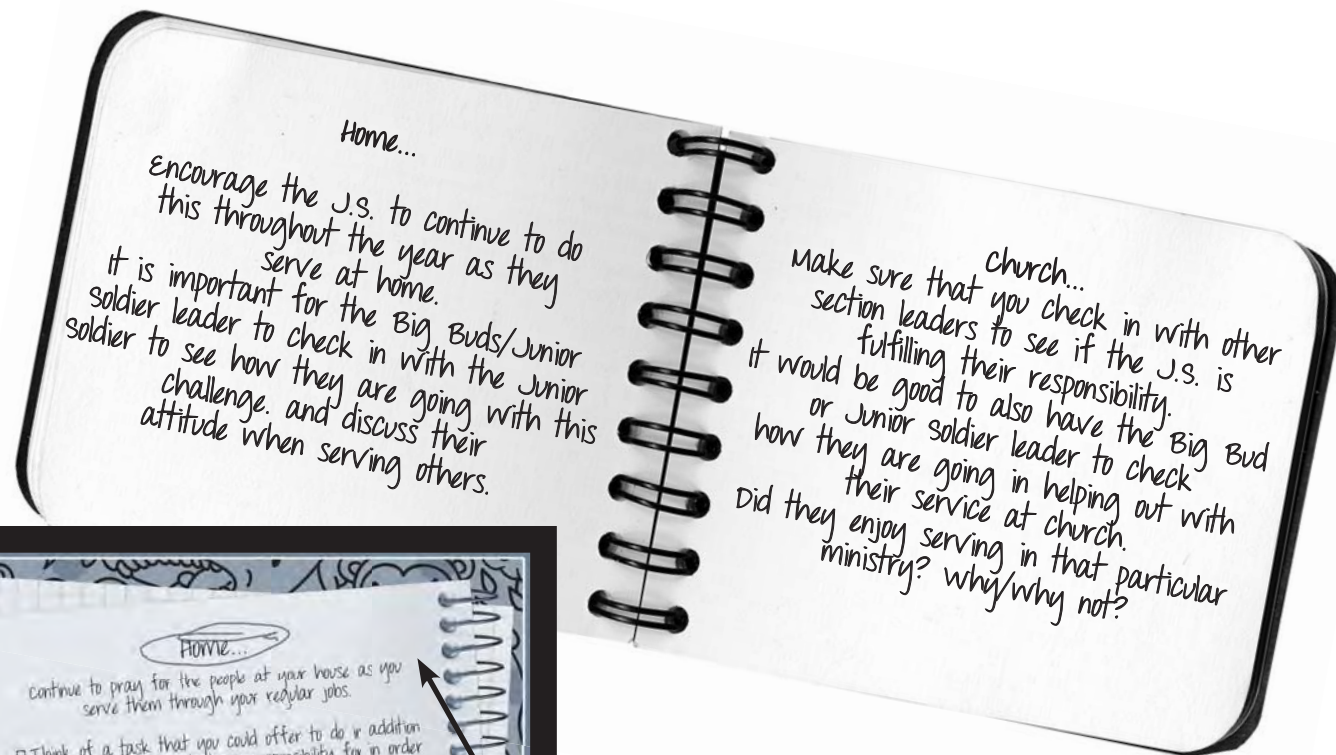 Home...
Encourage the J.S. to continue to do
this throughout the year as they
serve at home.
It is important for the Big Buds/Junior
soldier leader to check in with the Junior
soldier to see how they are going with this
challenge. and discuss their
attitude when serving others.
Church...
Make sure that you check in with other
section leaders to see if the J.S. is
fulfilling their responsibility.
It would be good to also have the Big Bud
or Junior soldier leader to check
how they are going in helping out with
their service at church.
Did they enjoy serving in that particular
ministry? Why/why not?
Home...
Continue to pray for the people at your house as you
serve them through your regular jobs.
Think of a task that you could offer to do in addition
for in order